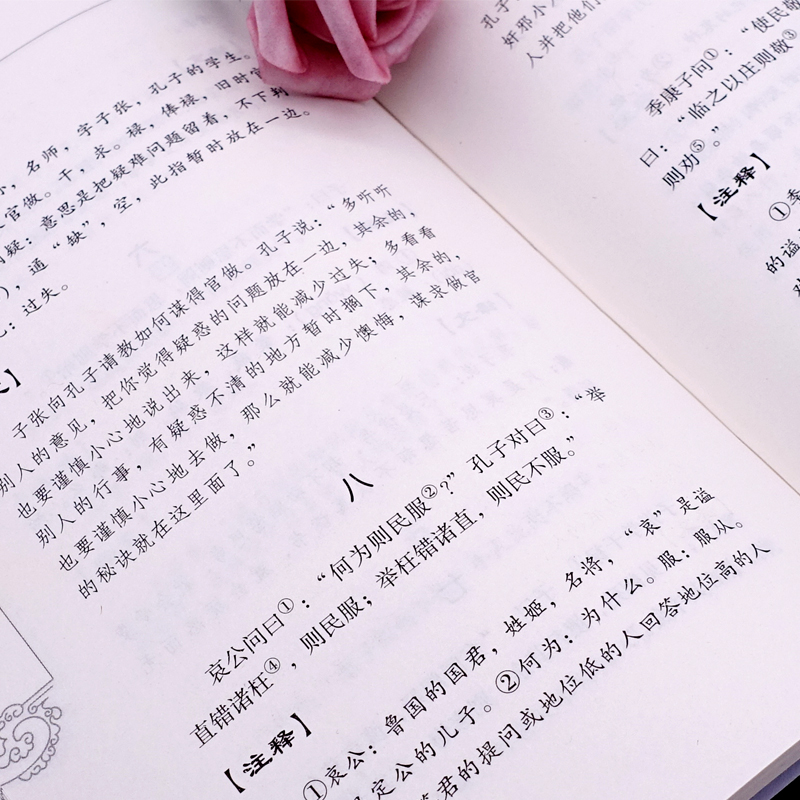 名师，字子张，孔子的学生。
官做。干，求。禄，俸禄，旧时官
疑：意思是把疑难问题留着，不下判
，通“缺”，空，此指暂时放在一边。
：过失。
】
子张向孔子请教如何谋得官做。孔子说：“多听听
别人的意见，把你觉得疑惑的问题放在一边，其余的，
也要谨慎小心地说出来，这样就能减少过失；多看看
别人的行事，有疑惑不清的地方暂时搁下，其余的，
也要谨慎小心地去做，那么就能减少懊悔，谋求做官
的秘诀就在这里面了。”
八
哀公问曰①：“何为则民服②？”孔子对曰③：“举
直错诸枉④，则民服；举枉错诸直，则民不服。”
【注释】
①哀公：鲁国的国君，姓姬，名将，“哀”是谥
定公的儿子。②何为：为什么。服：服从。
君的提问或地位低的人回答地位高的人
孔子
奸邪小人
人并把他们
季康子问①：“使民敬
曰：“临之以庄则敬③
则劝⑤。”
【注释】
①季
的谥